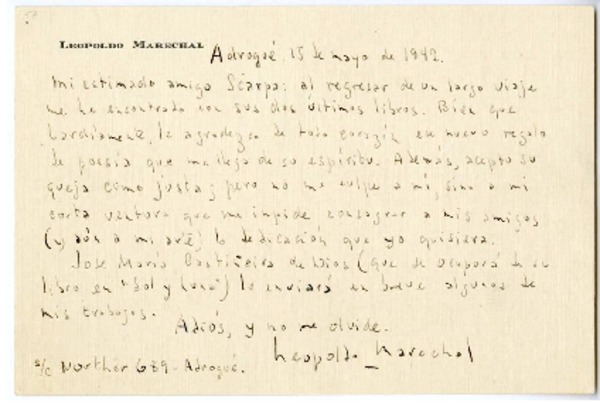 LEOPOLDO MARECHAL
Adrogué 15 de mayo de 1942.
Mi estimado amigo Scarpa: al regresar de un largo viaje
me he encontrado con sus dos últimos libros. Bien que
tardíamente, le agradezco de todo corazón ese nuevo regalo
de poesía que me llega de su espíritu. Además, acepto su
queja como justa; pero no me culpe a mí, sino a mi
corta ventura que me impide consagrar a mis amigos
(y aún a mi arte) la dedicación que yo quisiera.
José María Castiñeira de Dios (que se ocupará de su
libro en "Sol y Luna") le enviará en breve algunos de
mis trabajos.
Adiós, y no me olvide.
Leopoldo Marechal
s/c Norther 689 - Adrogué.